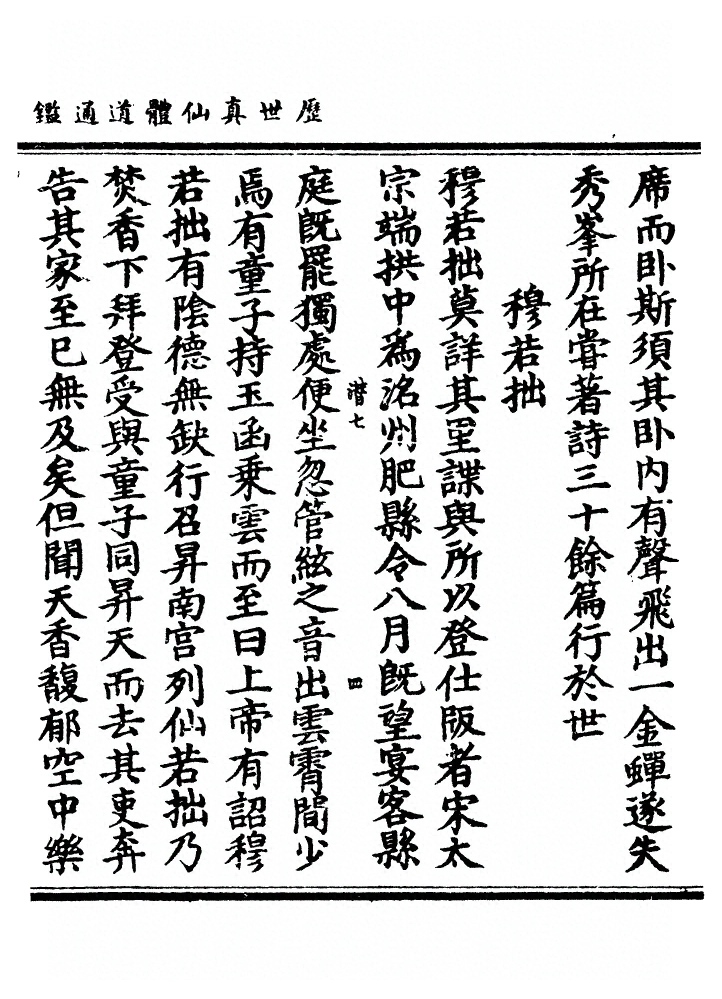 歷世真仙體道通鑑
席而卧斯須其卧内有聲飛出一金蟬遂失
秀峯所在嘗著詩三十餘篇行於世
穆若拙
穆若拙莫詳其里諜與所以登仕版者宋太
宗端拱中為洺州肥縣令八月既望宴客縣
潜七
四
庭既罷獨處便坐忽管絃之音出雲霄間少
焉有童子持玉函乗雲而至曰上帝有詔穆
若拙有陰德無缺行召昇南宫列仙若拙乃
焚香下拜登受與童子同昇天而去其吏奔
告其家至已無及矣但聞天香馥郁空中樂